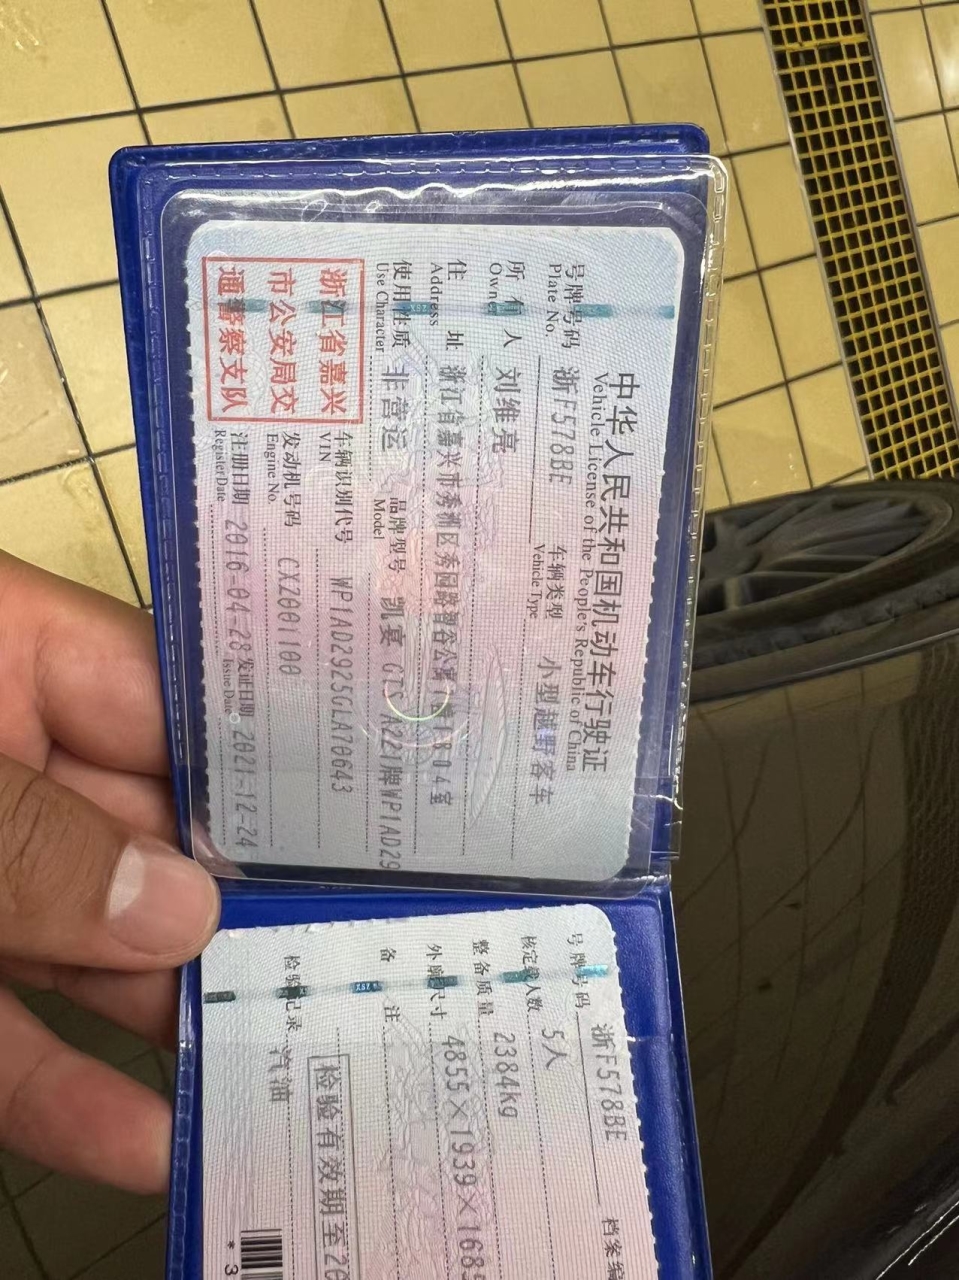 中华人民共和国机动车行驶证
Vehicle License of the People's Republic of China
号牌号码 浙F578BE 车辆类型 小型越野客车
Plate No. Vehicle Type
所有人 刘维亮
Owner
住址 浙江省嘉兴市秀洲区秀园路智谷公寓1幢1804室
Address
使用性质 非营运 品牌型号 凯宴 GTS A221牌WP1AD29
Use Character Model
浙江省嘉兴
市公安局交
通警察支队
车辆识别代号 WP1AD2925GLA70643
VIN
发动机号码 CXZ001100
Engine No.
注册日期 2016-04-28 发证日期 2021-12-24
Register Date Issue Date
号牌号码 浙F578BE 档案编
核定载人数 5人
整备质量 2384kg
外廓尺寸 4855×1939×168
备注
检验有效期至20
检验记录 汽油
*3